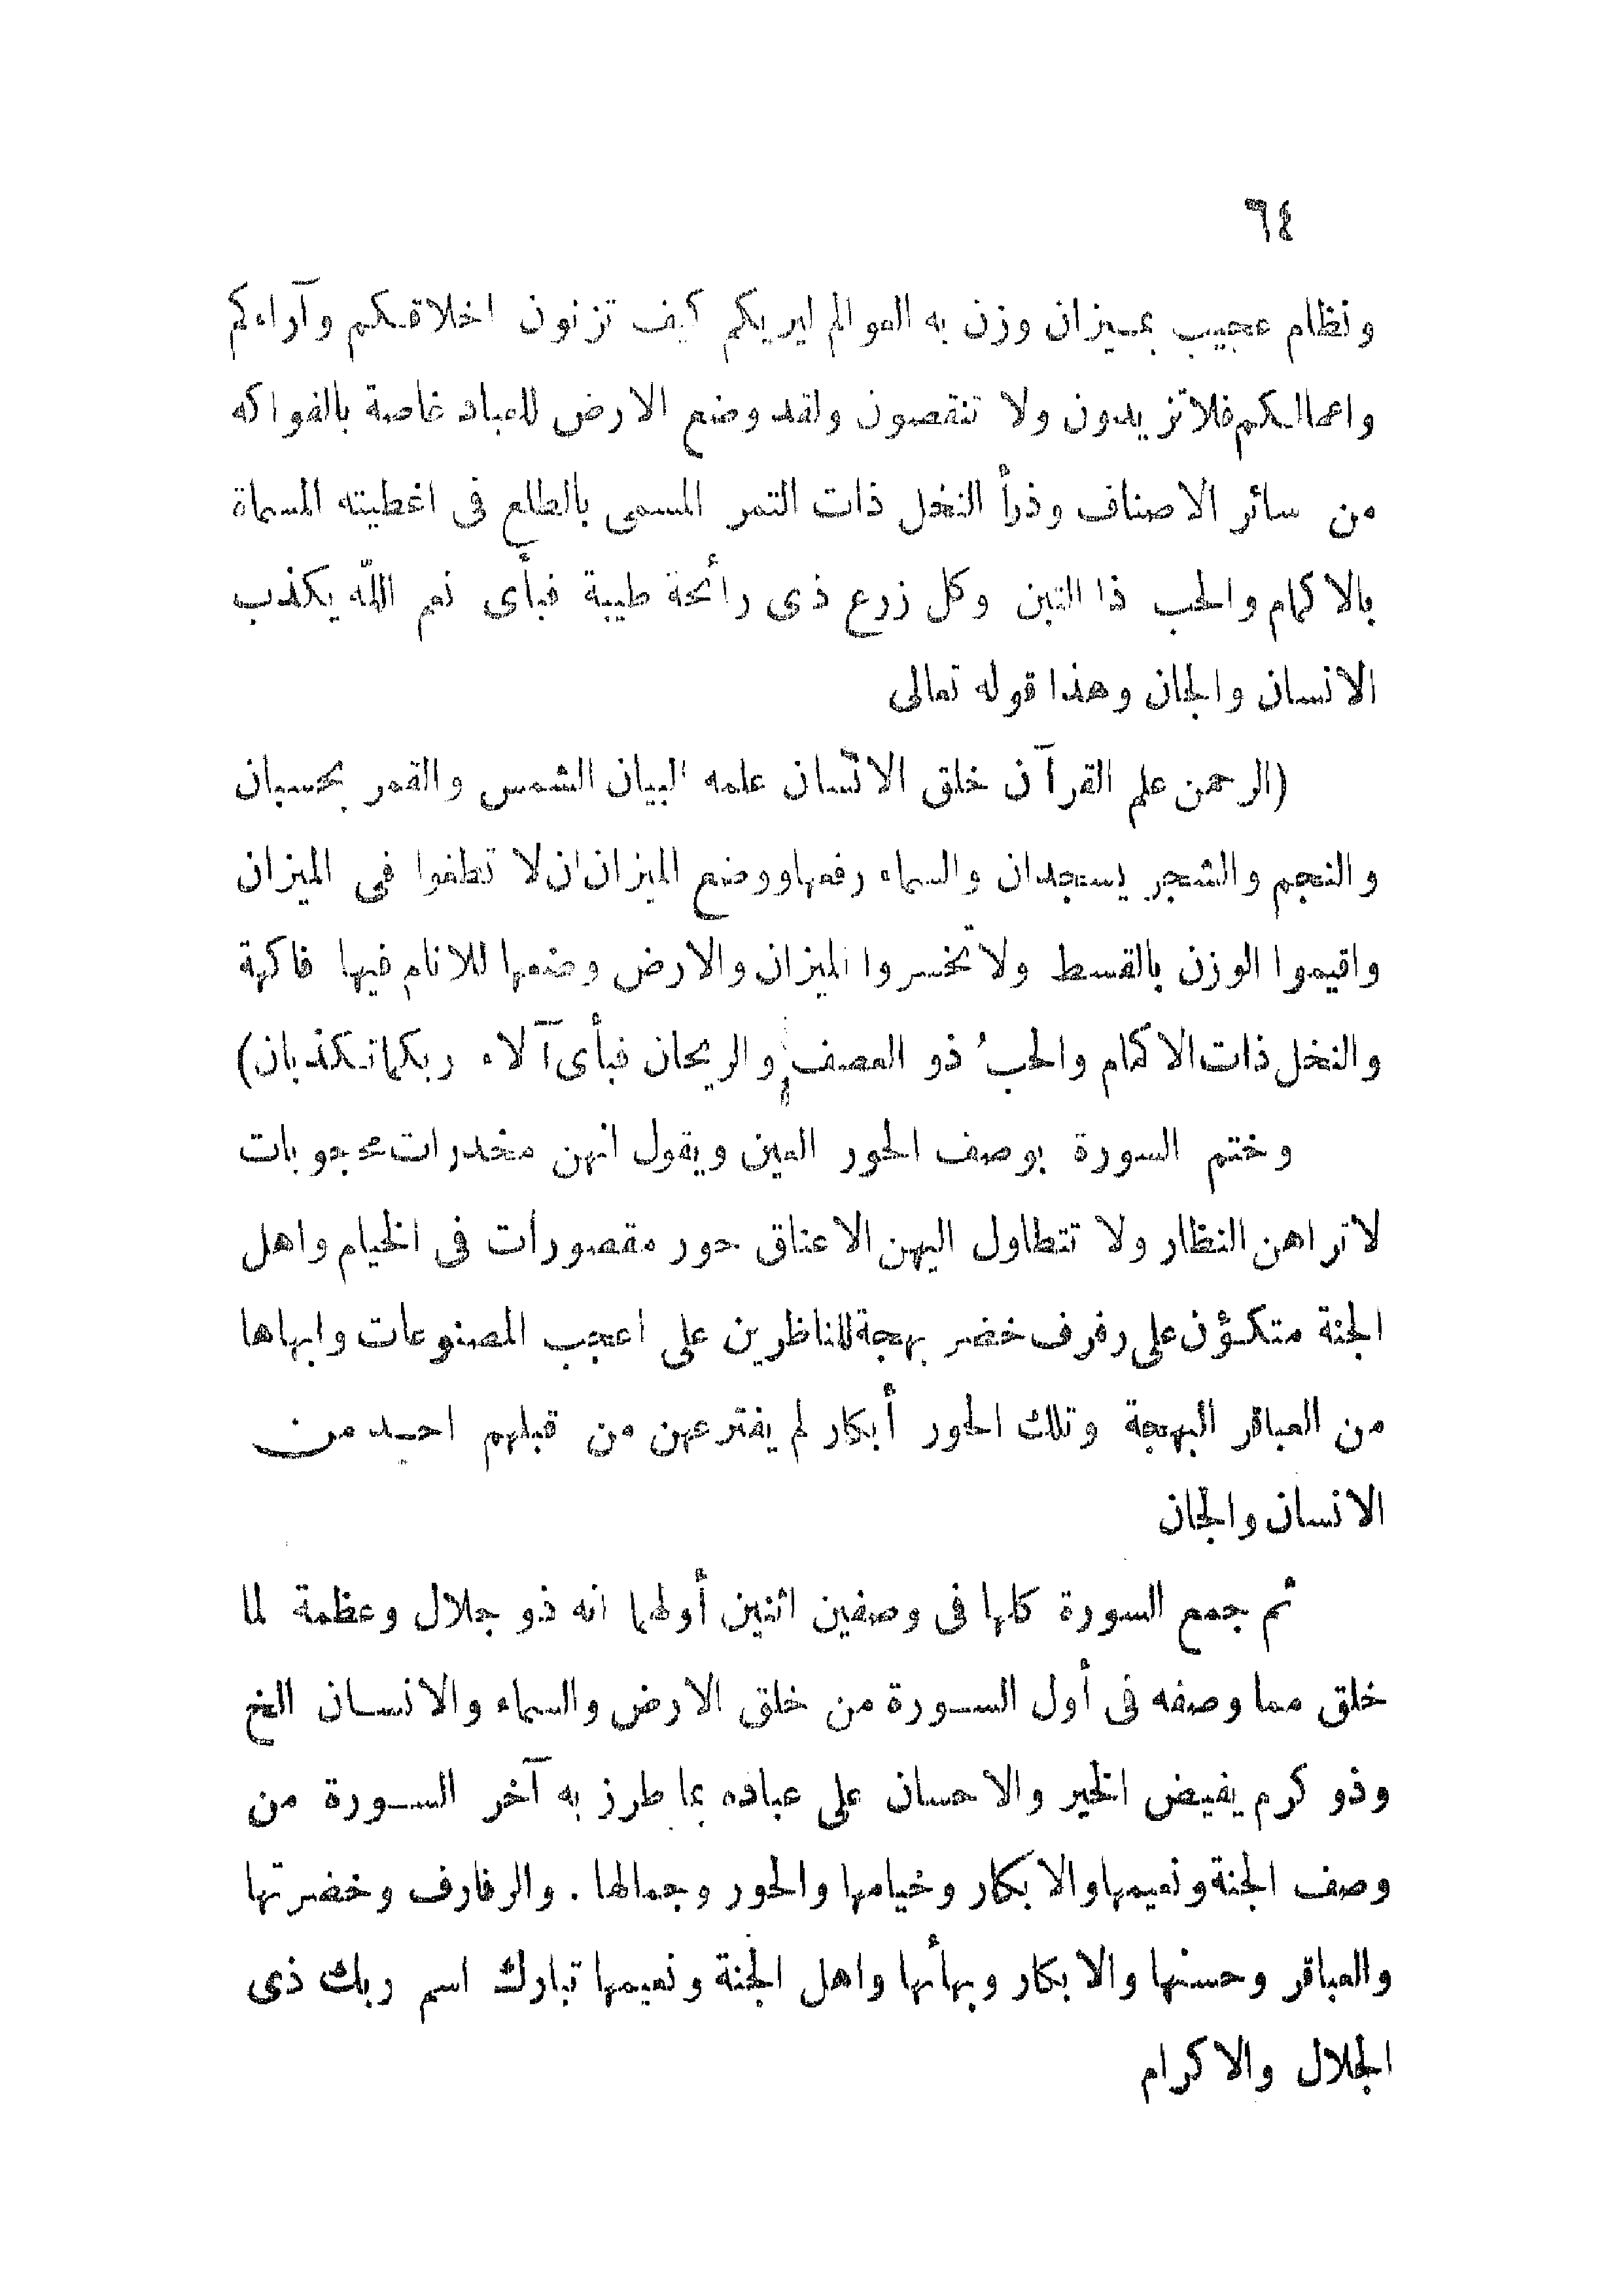 ٦٤
ونظام عجيب بميزان وزن به العوالم ليريكم كيف تزنون اخلاقكم وآراءكم
واعمالكم فلا تزيدون ولا تنقصون ولقد وضع الارض للعباد غاصة بالفواكه
من سائر الاصناف وذرأ النخل ذات التمر المسمى بالطلع فى اغطيته المسماة
بالاكمام والحب ذا التبن وكل زرع ذى رائحة طيبة فبأى نعم الله يكذب
الانسان والجان وهذا قوله تعالى
(الرحمن علم القرآن خلق الانسان علمه البيان الشمس والقمر بحسبان
والنجم والشجر يسجدان والسماء رفعها ووضع الميزان ان لا تطغوا فى الميزان
واقيموا الوزن بالقسط ولا تخسروا الميزان والارض وضعها للانام فيها فاكهة
والنخل ذات الاكمام والحبُ ذو العصف والريحان فبأى آلاء ربكما تكذبان)
وختم السورة بوصف الحور العين ويقول انهن مخدرات محجوبات
لا تراهن النظار ولا تتطاول اليهن الاعناق حور مقصورات فى الخيام واهل
الجنة متكؤن على رفرف خضر بهجة للناظرين على اعجب المصنوعات وابهاها
من العباقر البهجة وتلك الحور أبكار لم يفترعهن من قبلهم احد من
الانسان والجان
ثم جمع السورة كلها فى وصفين اثنين أولهما انه ذو جلال وعظمة لما
خلق مما وصفه فى أول السورة من خلق الارض والسماء والانسان الخ
وذو كرم يفيض الخير والاحسان على عباده بما طرز به آخر السورة من
وصف الجنة ونعيمها والابكار وخيامها والحور وجمالها . والرفارف وخضرتها
والعباقر وحسنها والابكار وبهأنها واهل الجنة ونعيمها تبارك اسم ربك ذى
الجلال والاكرام